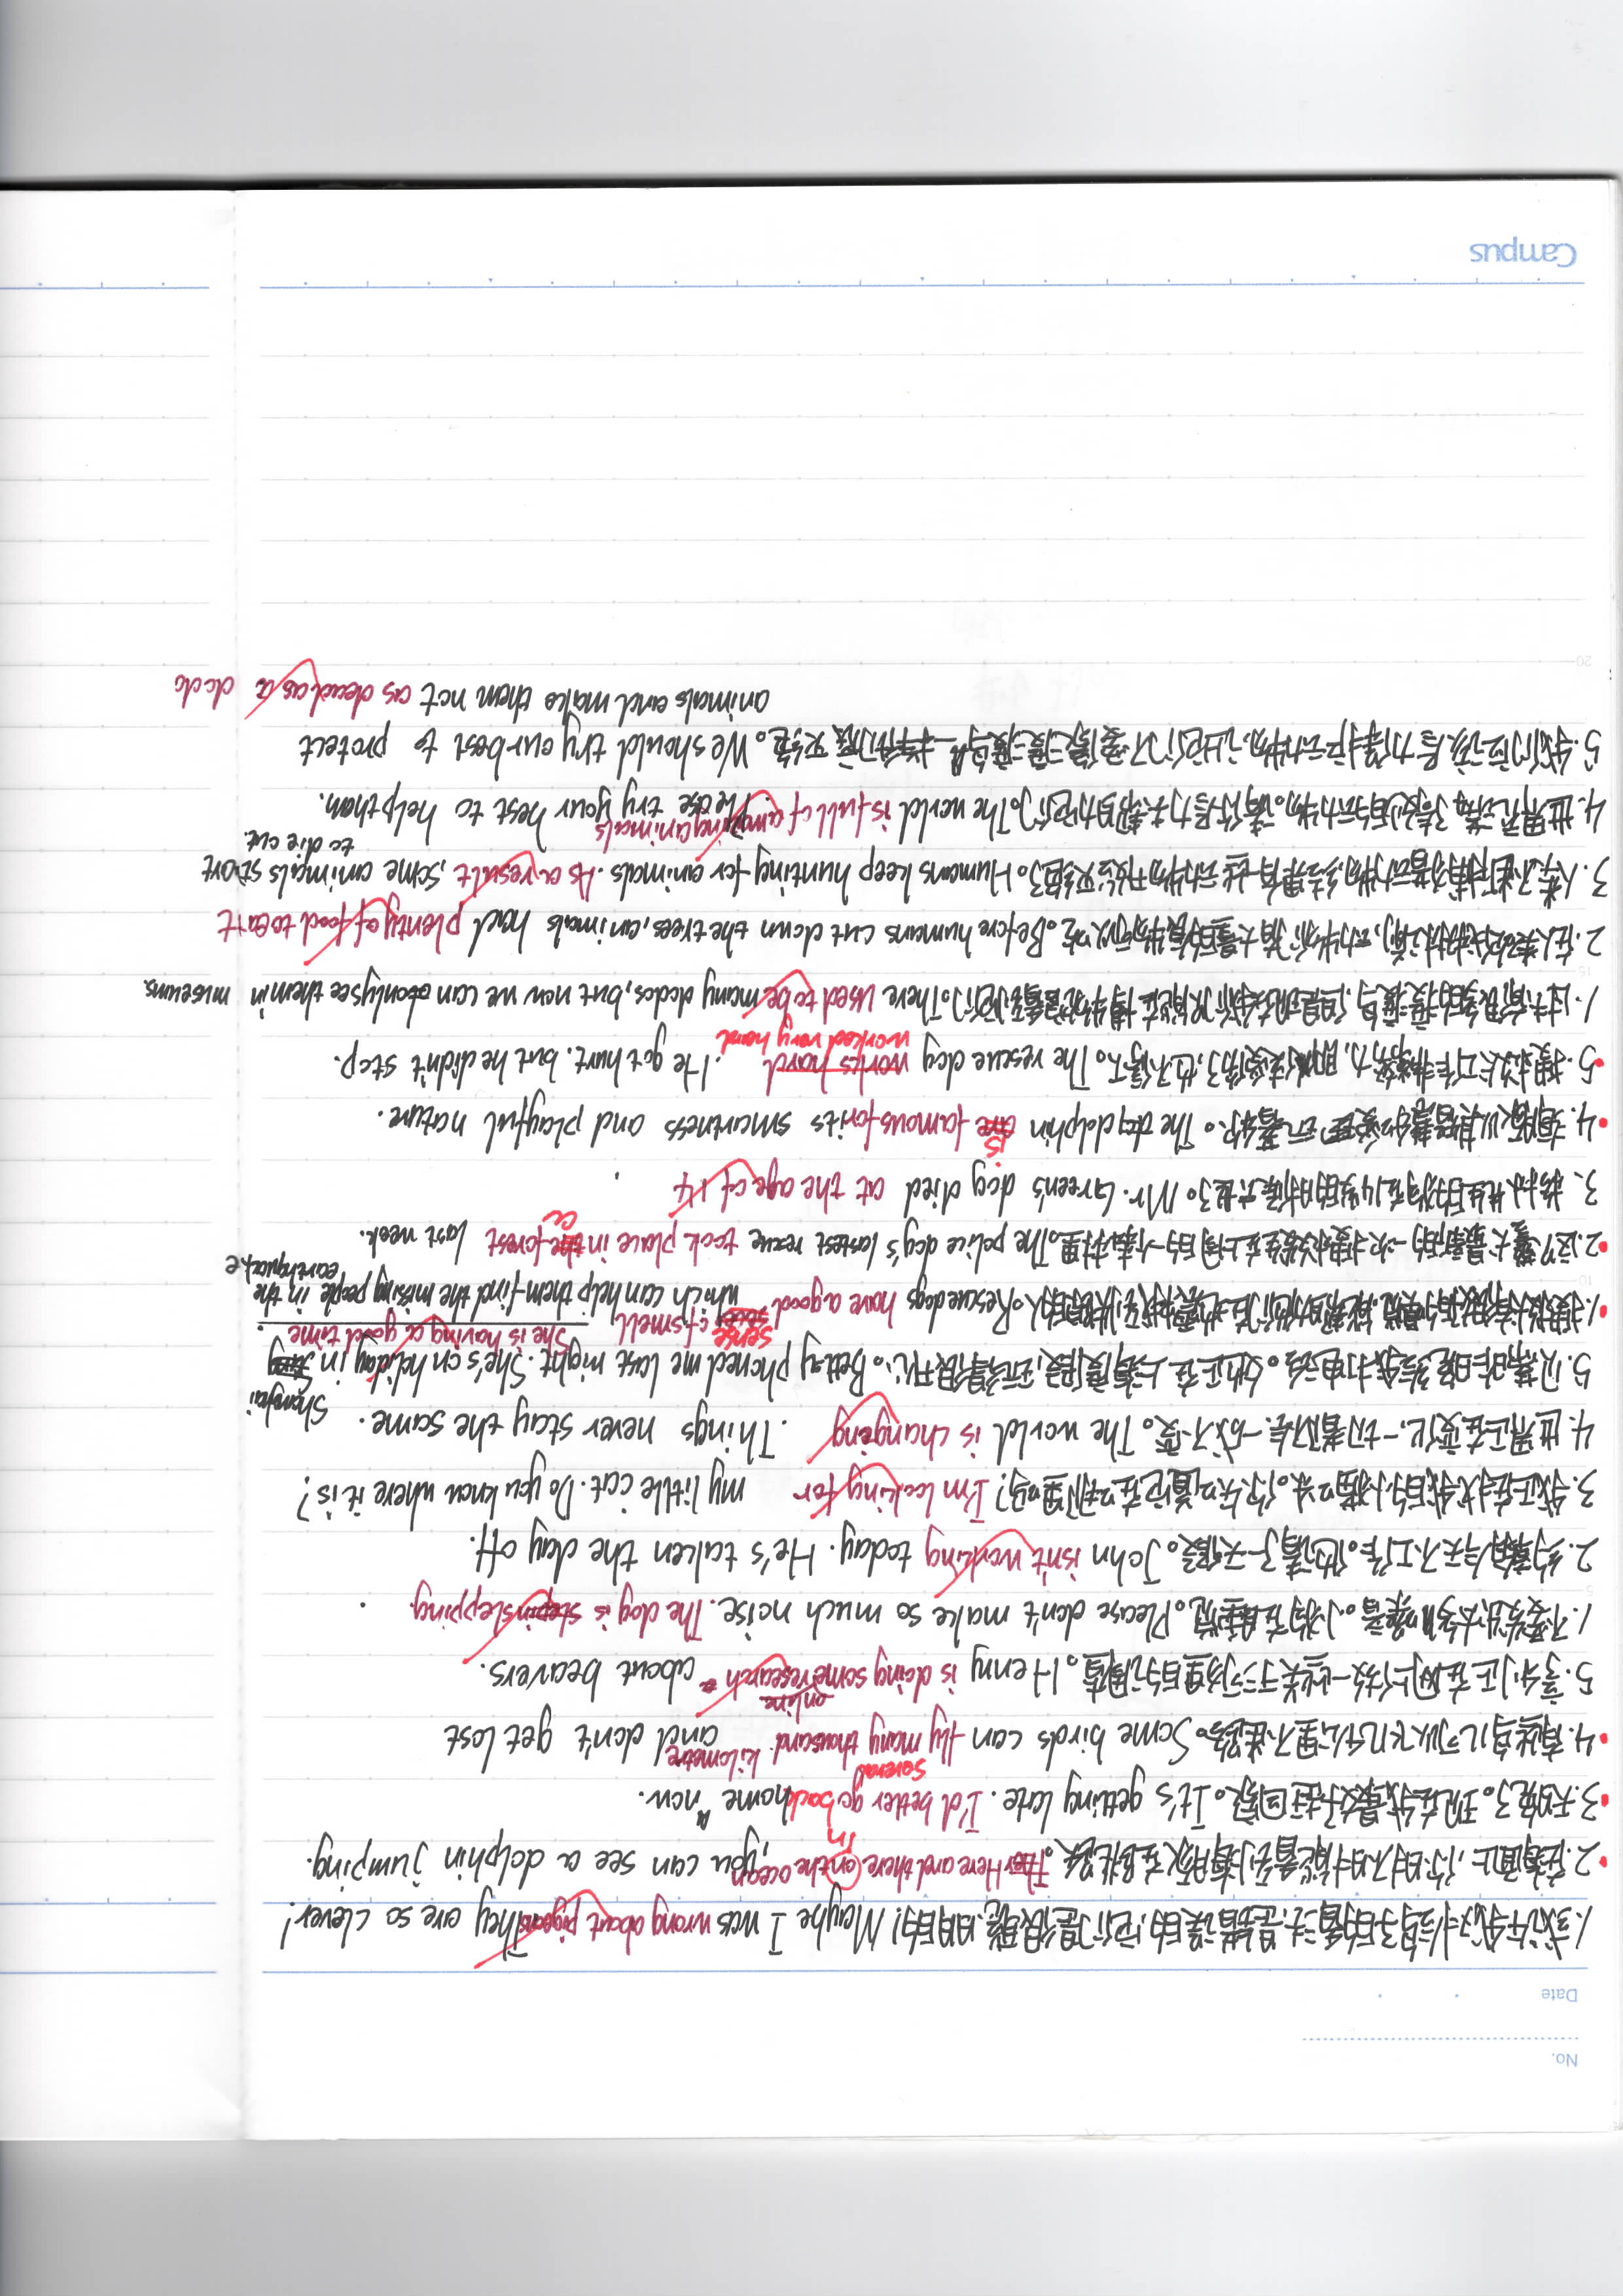 No.
Date
1.或许我对鸽子的看法是错误的,它们是很聪明的! Maybe I was wrong about pigeons They are so clever!
2.在海面上,你时不时能看到海豚在跳跃。Here and there on the ocean, you can see a dolphin jumping.
in
3.天晚了。现在我最好赶回家。It's getting late. I'd better go back home now.
several
4.有些鸟儿可以飞几千公里不迷路。Some birds can fly many thousand kilometre and don't get lost
online
5.亨利正在网上做一些关于河狸的调查。Henry is doing some research about beavers.
1.不要发出太多噪音。小狗在睡觉。Please don't make so much noise. The dog is slepping.
2.约翰今天不工作。他请了一天假。John isn't working today. He's taken the day off.
3.我正在找我的小猫咪。你知道它在哪里吗? I'm looking for my little cat. Do you know where it is?
4.世界正在变化,一切都不会一成不变。The world is changing. Things never stay the same.
5.贝蒂昨晚给我打电话。她正在上海度假,玩得很开心。Betty phoned me last night. She's on holiday in Shanghai
She is having a good time.
1.搜救犬有很好的嗅觉,能帮助他们在地震中找到失踪的人。Rescue dogs have a good sense of smell, which can help them find the missing people in the
earthquache
2.这只警犬最新的一次搜救发生在上周的一个森林里。The police dog's lastest rescue took place in the forest last week.
a
3、格林先生的狗在14岁的时候去世了。Mr. Green's dog died at the age of 14.
is
4.海豚以其智慧和爱玩著称。The dolphin are famous for its smartness and playful nature.
5.搜救犬工作非常努力,即使受伤了,也不停下。The rescue dog works hard. He got hurt. but he didn't stop.
worked very hard
1.过去有很多的渡渡鸟,但是现在我们只能在博物馆看到它们。There used to be many dodos, but now we can only see them in museums.
2.在人类砍伐树林之前,动物们有大量的食物可以吃。Before humans cut down the trees, animals had plenty of food to eatt
3.人类不断捕猎动物,结果有一些动物开始灭绝了。Humans keep hunting for animals. As a result, some animals start
to die out.
4.世界充满了奇妙的动物。请你尽力去帮助它们。The world is full of amazing animals. Please try your best to help them.
5.我们应该尽力保护动物,让它们不要像渡渡鸟一样彻底灭绝。We should try our best to protect
animals and make them not as dead as a dodo
5
10
15
20
Campus